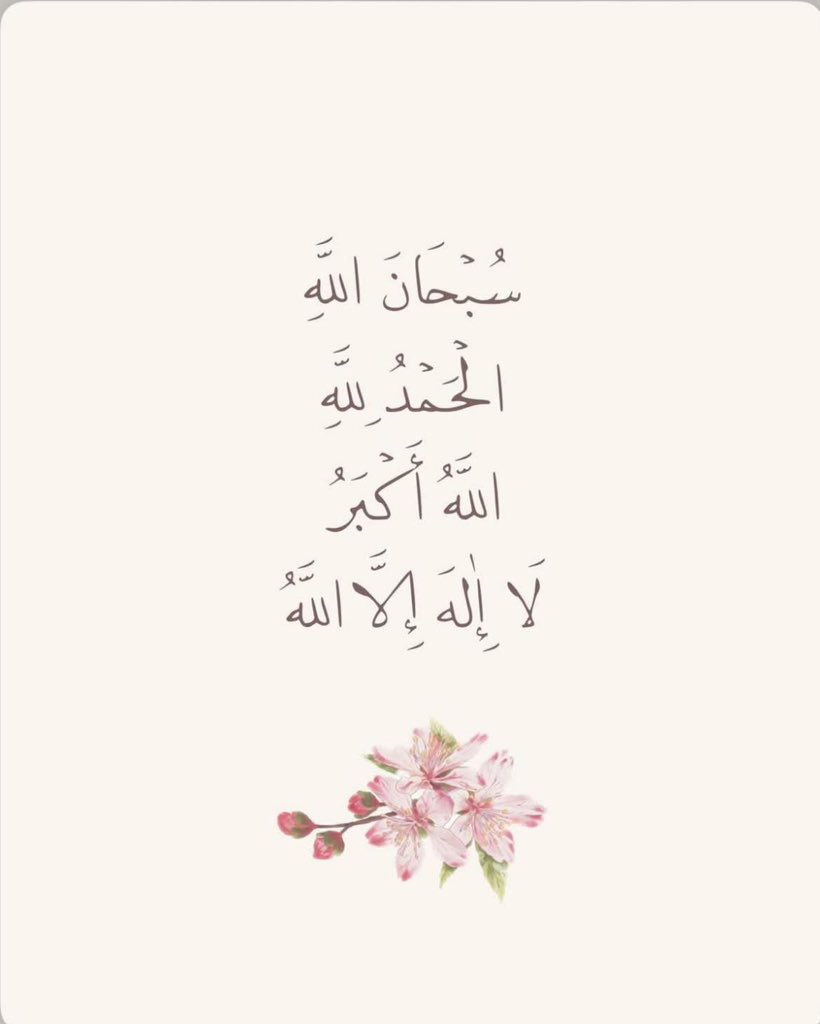 سُبْحَانَ اللَّهِ
الْحَمْدُ لِلَّهِ
اللَّهُ أَكْبَرُ
لَا إِلٰهَ إِلَّا اللَّهُ